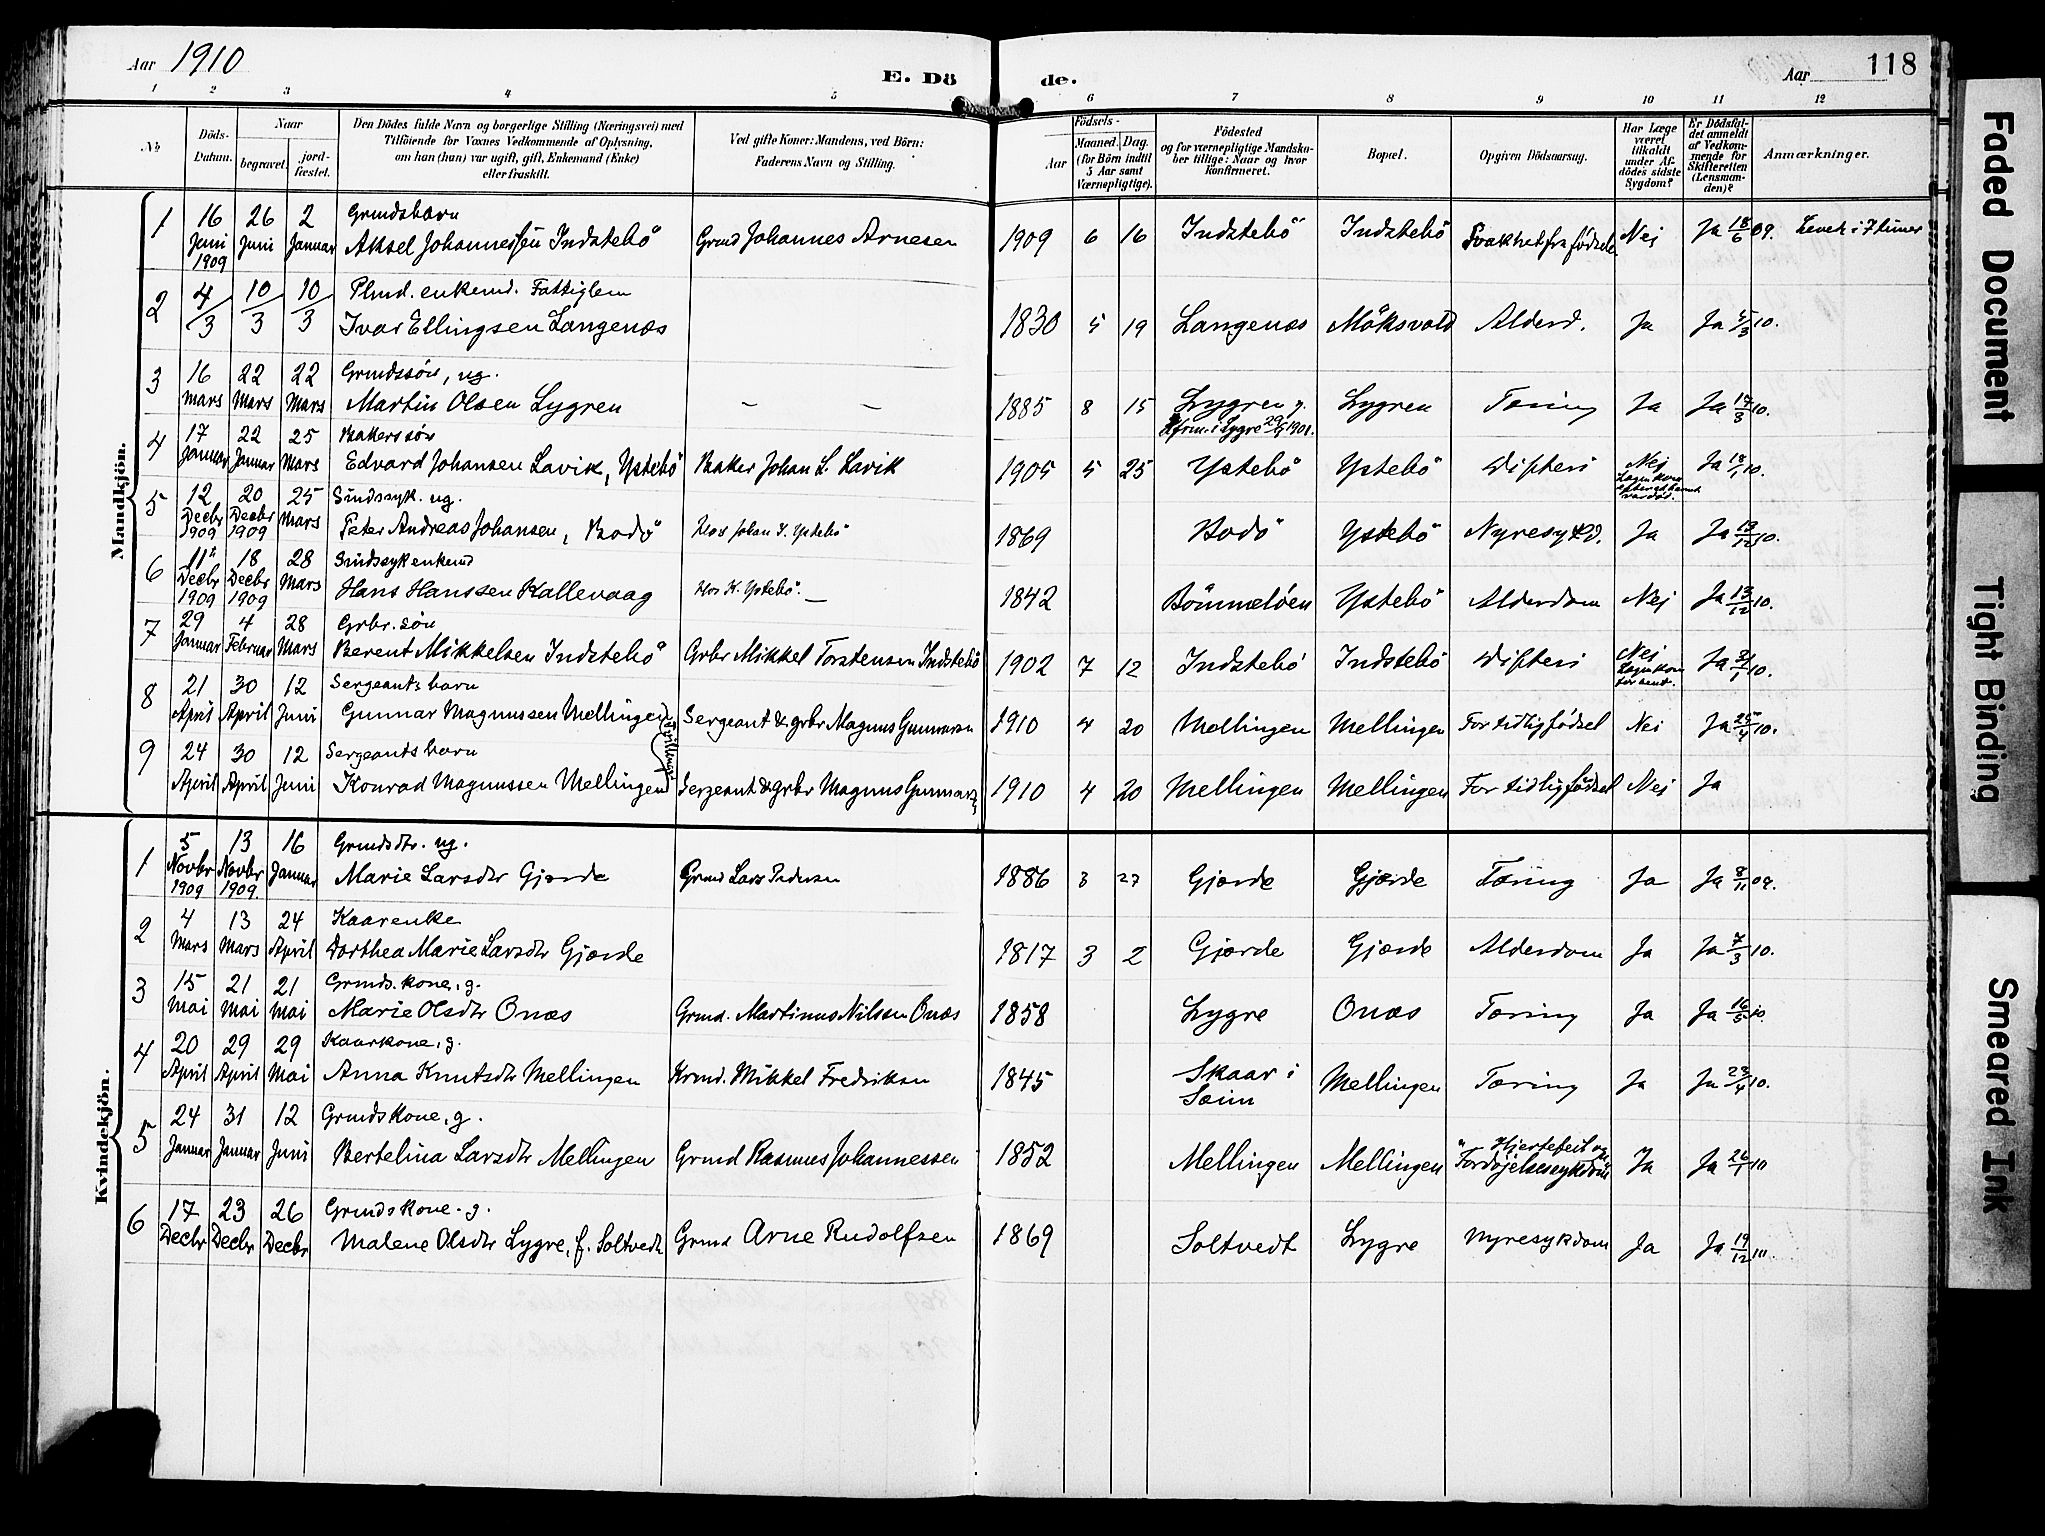 Aar 1910
E. Dö de.
Aar
118
1 2 3 4 5 6 7 8 9 10 11 12
No
Döds-Datum.
Naar
begravet.
jord-fæstet.
Den Dödes fulde Navn og borgerlige Stilling (Næringsvei) med
Tilföiende for Voxnes Vedkommende af Oplysning,
om han (hun) var ugift, gift, Enkemand (Enke)
eller fraskilt.
Ved gifte Koner: Mandens, ved Börn:
Faderens Navn og Stilling.
Födsels-
Aar
Maaned. Dag.
(for Börn indtil
5 Aar samt
Værnepligtige).
Födested
og for værnepligtige Mandska-
ber tillige: Naar og hvor
konfirmeret.
Bopæl.
Opgiven Dödsaarsag.
Har Læge
været
tilkaldt
under Af-
dödes sidste
Sygdom?
Er Dödsfal-
det anmeldt
af Vedkom-
mende for
Skifteretten
(Lensman-
den)?
Anmærkninger.
Mandkjön.
1 16 Juni 1909 26 Juni 2 Januar Grmdsbarn
Aksel Johannessen Indstebö Grmd Johannes Arnesen 1909 6 16 Indstebö Indstebö Svakhet fra födselen Nej Ja 18/6 09. Levet i 7 timer
2 4/3 10/3 10/3 Plmd. enkemd. Fattiglem
Ivar Ellingsen Langenæs 1830 5 19 Langenæs Möksvold Alderd. Ja Ja 5/3 10.
3 16 Mars 22 Mars 22 Mars Grmdssön, ug.
Martin Olsen Lygren — — 1885 8 15 Lygren Lygren Tæring Ja Ja 17/3 10.
4 17 Januar 22 Januar 25 Mars Bakerssön
Edvard Johansen Lavik, Ystebö Baker Johan L. Lavik 1905 5 25 Ystebö Ystebö Difteri Nej Ja 18/1 10.
5 12 Decbr 1909 20 Decbr 1909 25 Mars Sindssyk. ug.
Peter Andreas Johansen, Bodö Hos Johan Ystebö 1869 Bodö Ystebö Nyresykd. Ja Ja 13/12 10.
6 11 Decbr 1909 18 Decbr 1909 28 Mars Sindssyk enkemd
Hans Hanssen Kallevaag Hos K. Ystebö. — 1842 Bömmeløen Ystebö Alderdom Nej Ja 13/12 10.
7 29 Januar 4 Februar 28 Mars Grbr. sön
Berent Mikkelsen Indstebö Grbr Mikkel Torstensen Indstebö 1902 7 12 Indstebö Indstebö Difteri Nej Ja 31/1 10.
8 21 April 30 April 12 Juni Sergeants barn
Gunnar Magnussen Mellingen Sergeant & grbr Magnus Gunnarsen 1910 4 20 Mellingen Mellingen For tidlig födsel Nei Ja 25/4 10.
(tvillinger)
9 24 April 30 April 12 Juni Sergeants barn
Konrad Magnussen Mellingen Sergeant & grbr Magnus Gunnars. 1910 4 20 Mellingen Mellingen For tidlig födsel Nej Ja
Kvindekjön.
1 5 Novbr 1909 13 Novbr 1909. 16 Januar Grmdsdtr. ug.
Marie Larsdtr Gjærde Grmd Lars Pedersen 1886 3 27 Gjærde Gjærde Tæring Ja Ja 8/11 09.
2 4 Mars 13 Mars 24 April Kaarenke
Dorthea Marie Larsdtr Gjærde 1817 3 2 Gjærde Gjærde Alderdom Ja Ja 7/3 10.
3 15 Mai 21 Mai 21 Mai Grmds. kone, g.
Marie Olsdtr Onæs Grmd. Martinus Nilsen Onæs 1858 Lygre Onæs Tæring Ja Ja 16/5 10.
4 20 April 29 April 29 Mai Kaarkone, g.
Anna Knutsdtr Mellingen Krmd. Mikkel Fredriksen 1845 Skaar i Sæim Mellingen Tæring Ja Ja 23/4 10.
5 24 Januar 31 Januar 12 Juni Grmdskone, g.
Bertelina Larsdtr Mellingen Grmd Rasmus Johannessen 1852 Mellingen Mellingen Hjertefeil og Fordöjelsessykdom Ja Ja 26/1 10
6 17 Decbr 23 Decbr 26 Decbr Grmdskone. g.
Malene Olsdtr Lygre, f. Soltvedt Grmd Arne Rudolfsen 1869 Soltvedt Lygre Nyresykdom Ja Ja 19/12 10.
Faded Document
Tight Binding
Smeared Ink